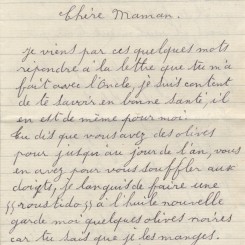 Chère Maman.
je viens par ces quelques mots
répondre à la lettre que tu m'a
fait avec l'Oncle, je suis content
de te savoir en bonne santé, il
en est de même pour moi.
Tu dis que vous avez des olives
pour jusqu'au jour de l'an, vous
en avez pour vous souffler aux
doigts, je languis de faire une
"roustido" à l'huile nouvelle
garde moi quelques olives noires
car tu sais que je les manges.